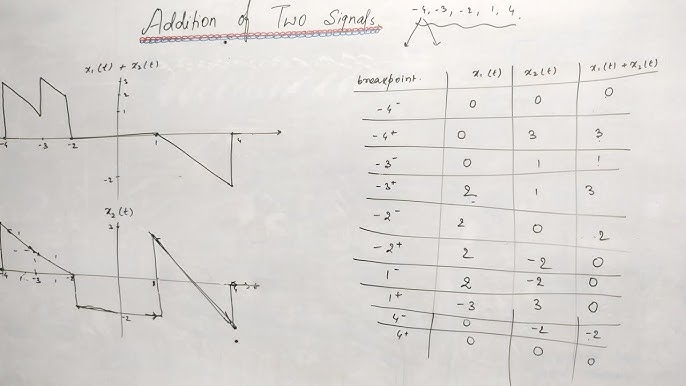 Addition of Two Signals
-4, -3, -2, 1, 4.
x₁(t) + x₂(t)
3
2
1
-4 -3 -2 1 4
-2
x₂(t)
3
-4 -3 -2
-2
breakpoint. x₁(t) x₂(t) x₁(t) + x₂(t)
-4⁻ 0 0 0
-4⁺ 0 3 3
-3⁻ 0 1 1
-3⁺ 2 1 3
-2⁻ 2 0 2
-2⁺ 2 -2 0
1⁻ 2 -2 0
1⁺ -3 3 0
4⁻ 0 -2 -2
4⁺ 0 0 0